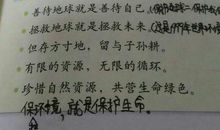 ·善待地球就是善待自己。
·拯救地球就是拯救未来。
·但存方寸地，留与子孙耕。
·有限的资源，无限的循环。
·珍惜自然资源，共营生命绿色。
保环境，就是保护生命。